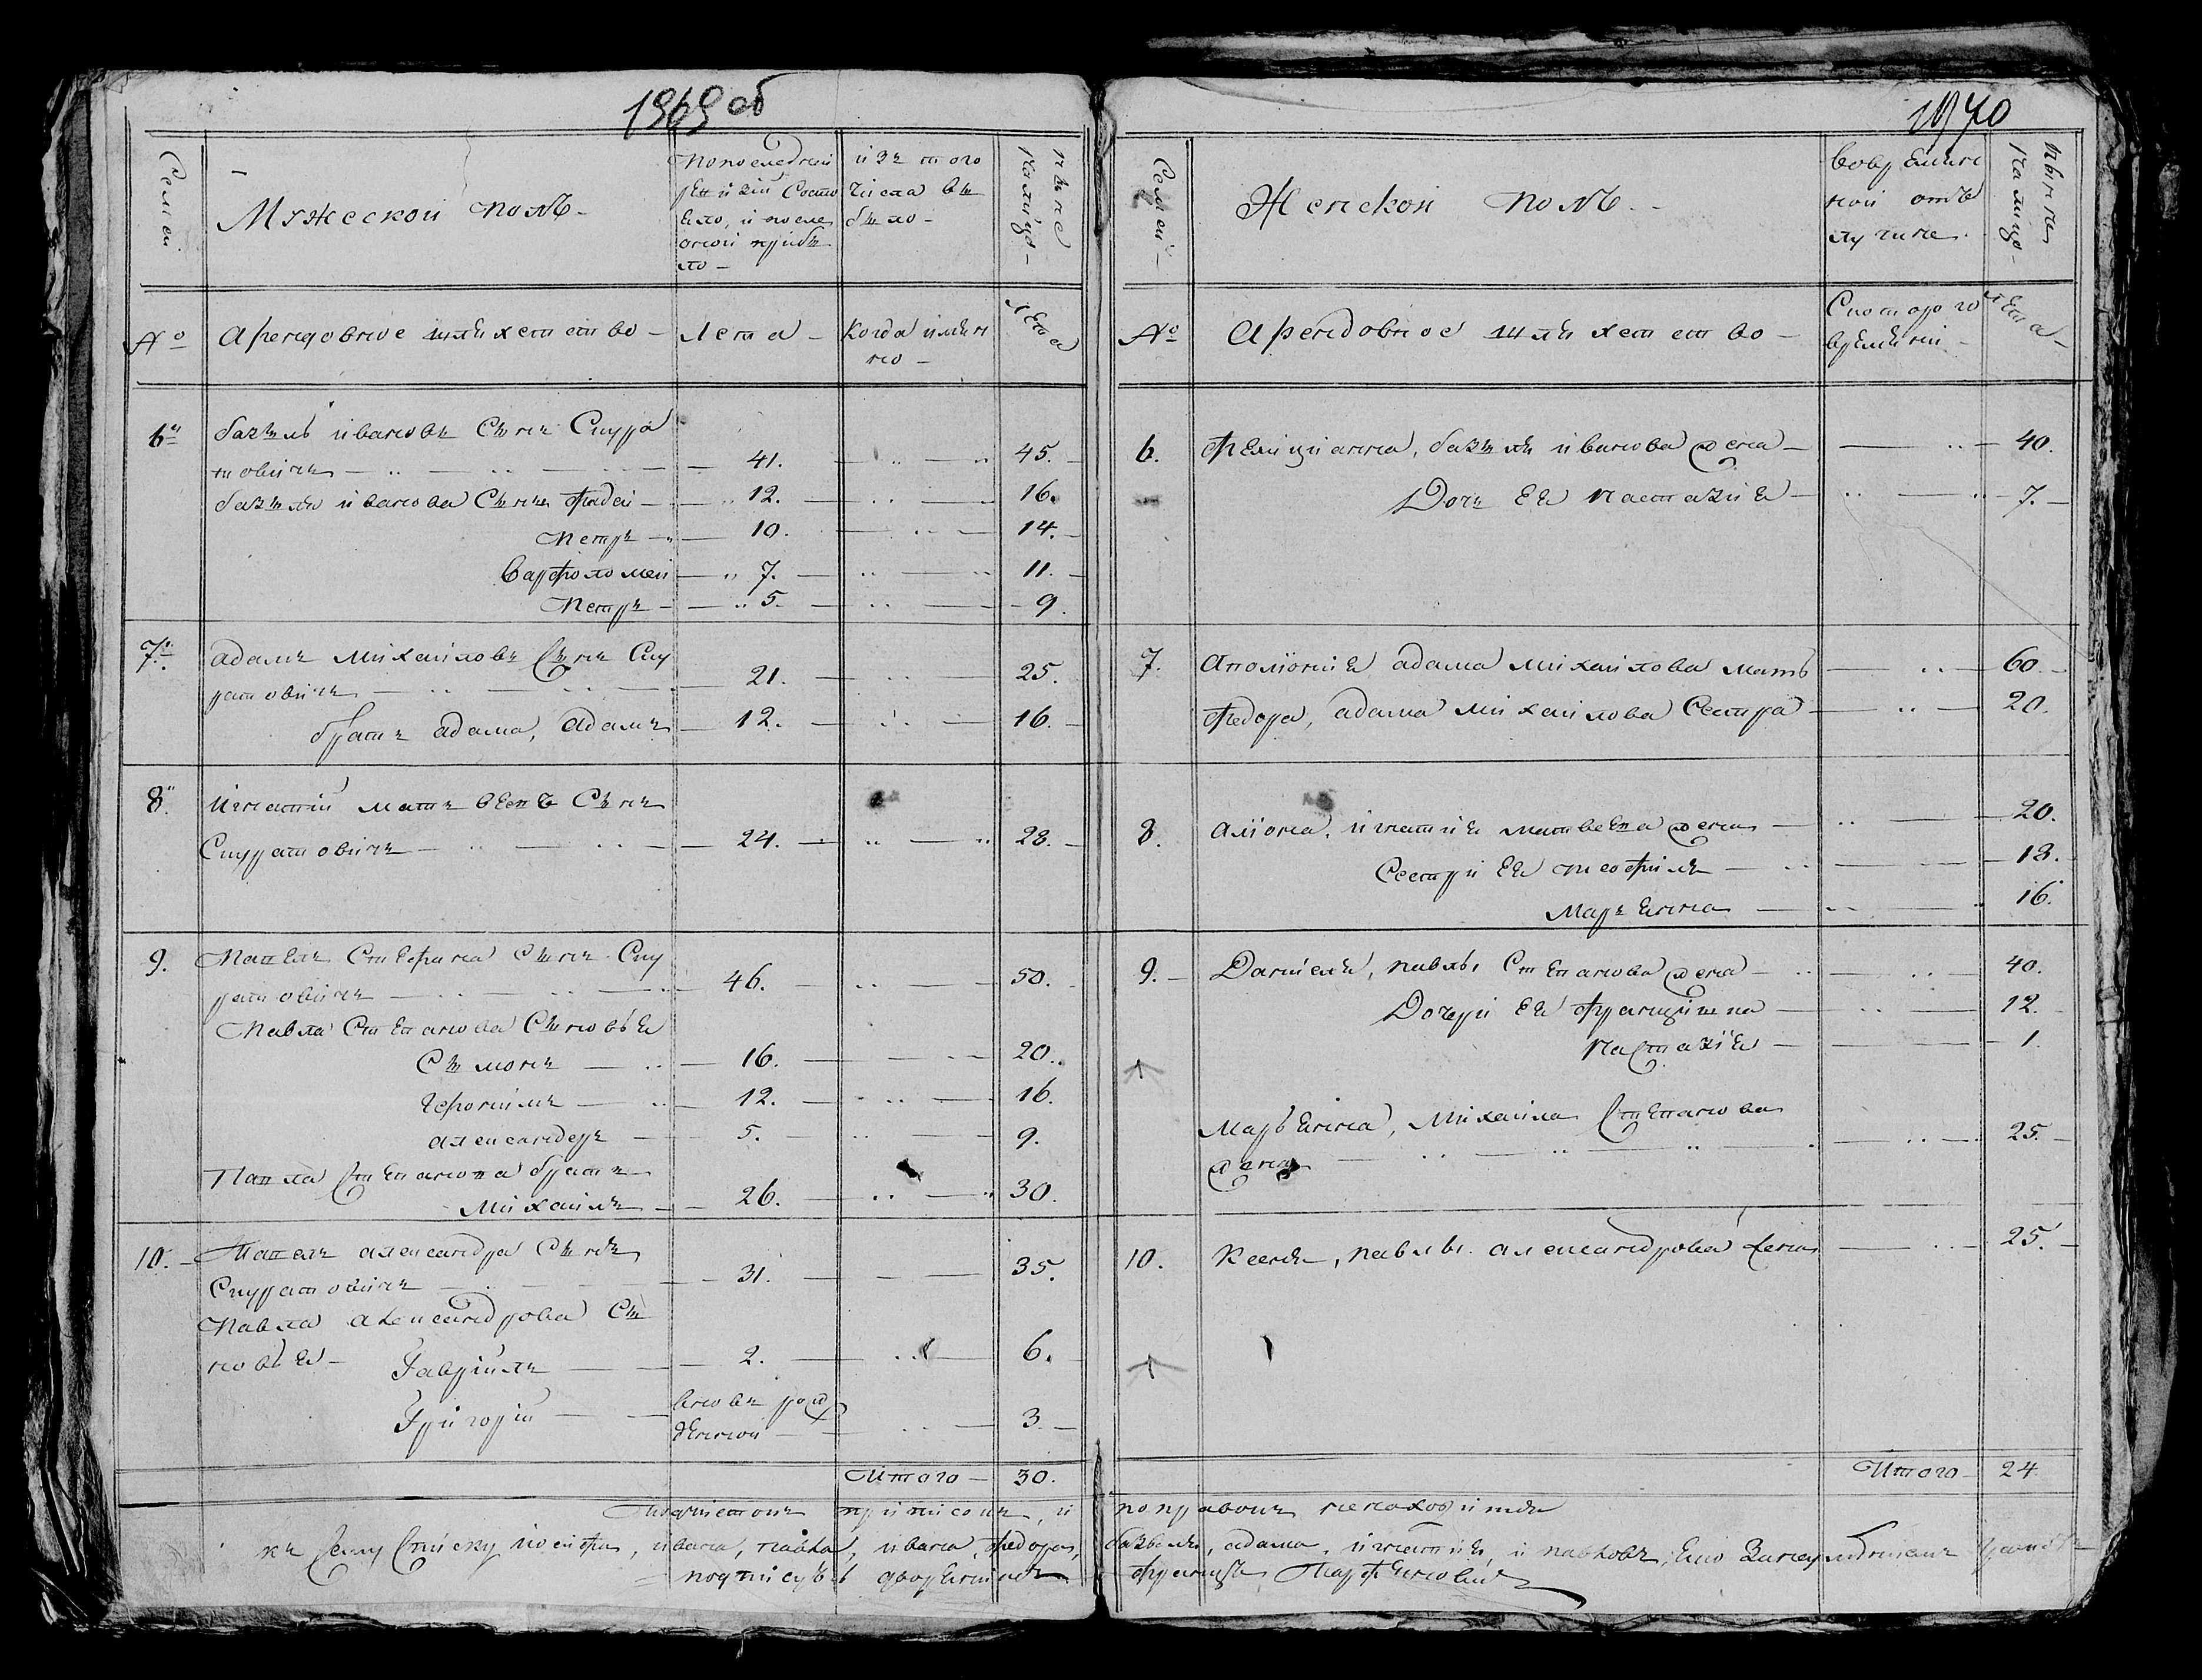 1969 об
Семеи
Мужескои полъ -
По последней
ревизии состо
яло, и после
оной прибы
ло -
изъ того
числа вы
было -
ныне
налицо -
№
Арендовное шляхетство -
Лета -
Когда именно -
Лета
6й
базыль ивановъ Сынъ Скура
товичъ - 41. 45.
базыля иванова Сынъ Фадей - 12. 16.
Петръ - 10. 14.
Варфоломеи - 7. 11.
Петръ - 5. 9.
7й
адамъ михаиловъ Сынъ Ску
ратовичъ - 21. 25.
братъ адама, адамъ - 12. 16.
8й
игнатий матвеевъ Сынъ
Скуратовичъ - 24. 28.
9.
Павелъ Стефана Сынъ Ску
ратовичъ - 46. 50.
Павла Степанова Сыновья
Сымонъ - 16. 20.
Героnimъ - 12. 16.
александеръ - 5. 9.
Павла Степанова братъ
михаилъ - 26. 30.
10.
Павелъ александра Сынъ
Скуратовичъ - 31. 35.
Павла александрова Сы
новья - Гавриилъ - 2. 6.
Григорий - вновь рож
денной - 3.
Итого - 30.
1970
Семеи -
Женскои полъ -
Вовремян
ной отъ
лучке.
ныне
налицо -
№
Арендовное шляхетство -
Скоторого
времени -
Лета -
6. Фелициянна, базыля иванова жена - 40.
Дочъ Ея настазия - 7. -
7. Аполония адама михаилова мать 60. -
Федора, адама михаилова Сестра - 20.
8. алiона, игнатия матвеева жена - 20.
Сестри Ея теофиля - 18.
Маръянна - 16.
9. - Даниеля, павла Степанова жена - 40.
Дочери Ея Францишка - 12.
настазiя - 1.
Маръянна, Михаила Степанова
жена - 25. -
10. Ксеня, павла александрова жена 25. -
Итого - 24
Подчистокъ приписокъ, и поправокъ ненаходится
къ Сему Списку иосифа, ивана, павла, ивана, федора, базыля, адама, игнатия, и павловъ,
подписуюсь дворянинъ францъ